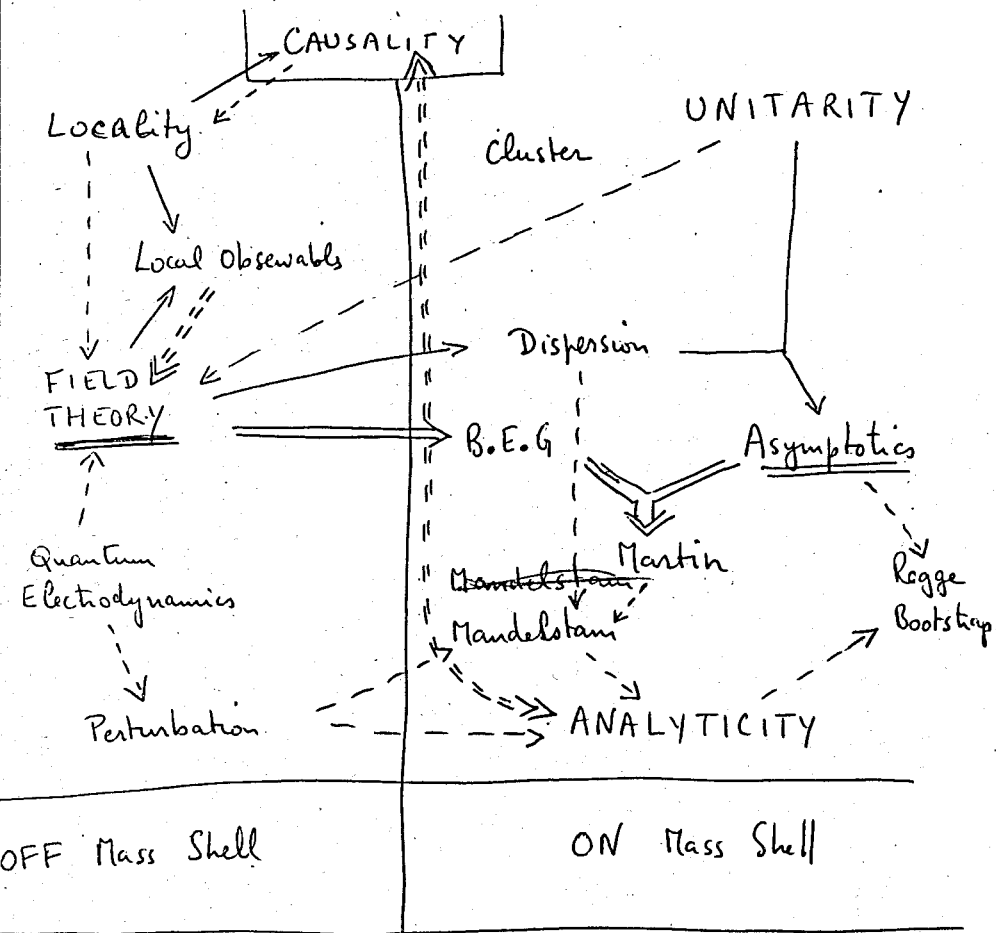 CAUSALITY
UNITARITY
Locality
Cluster
Local Observables
Dispersion
FIELD
THEORY
B.E.G
Asymptotics
Quantum
Electrodynamics
Martin
Mandelstam
Mandelstam
Regge
Bootstrap
Perturbation
ANALYTICITY
OFF Mass Shell
ON Mass Shell